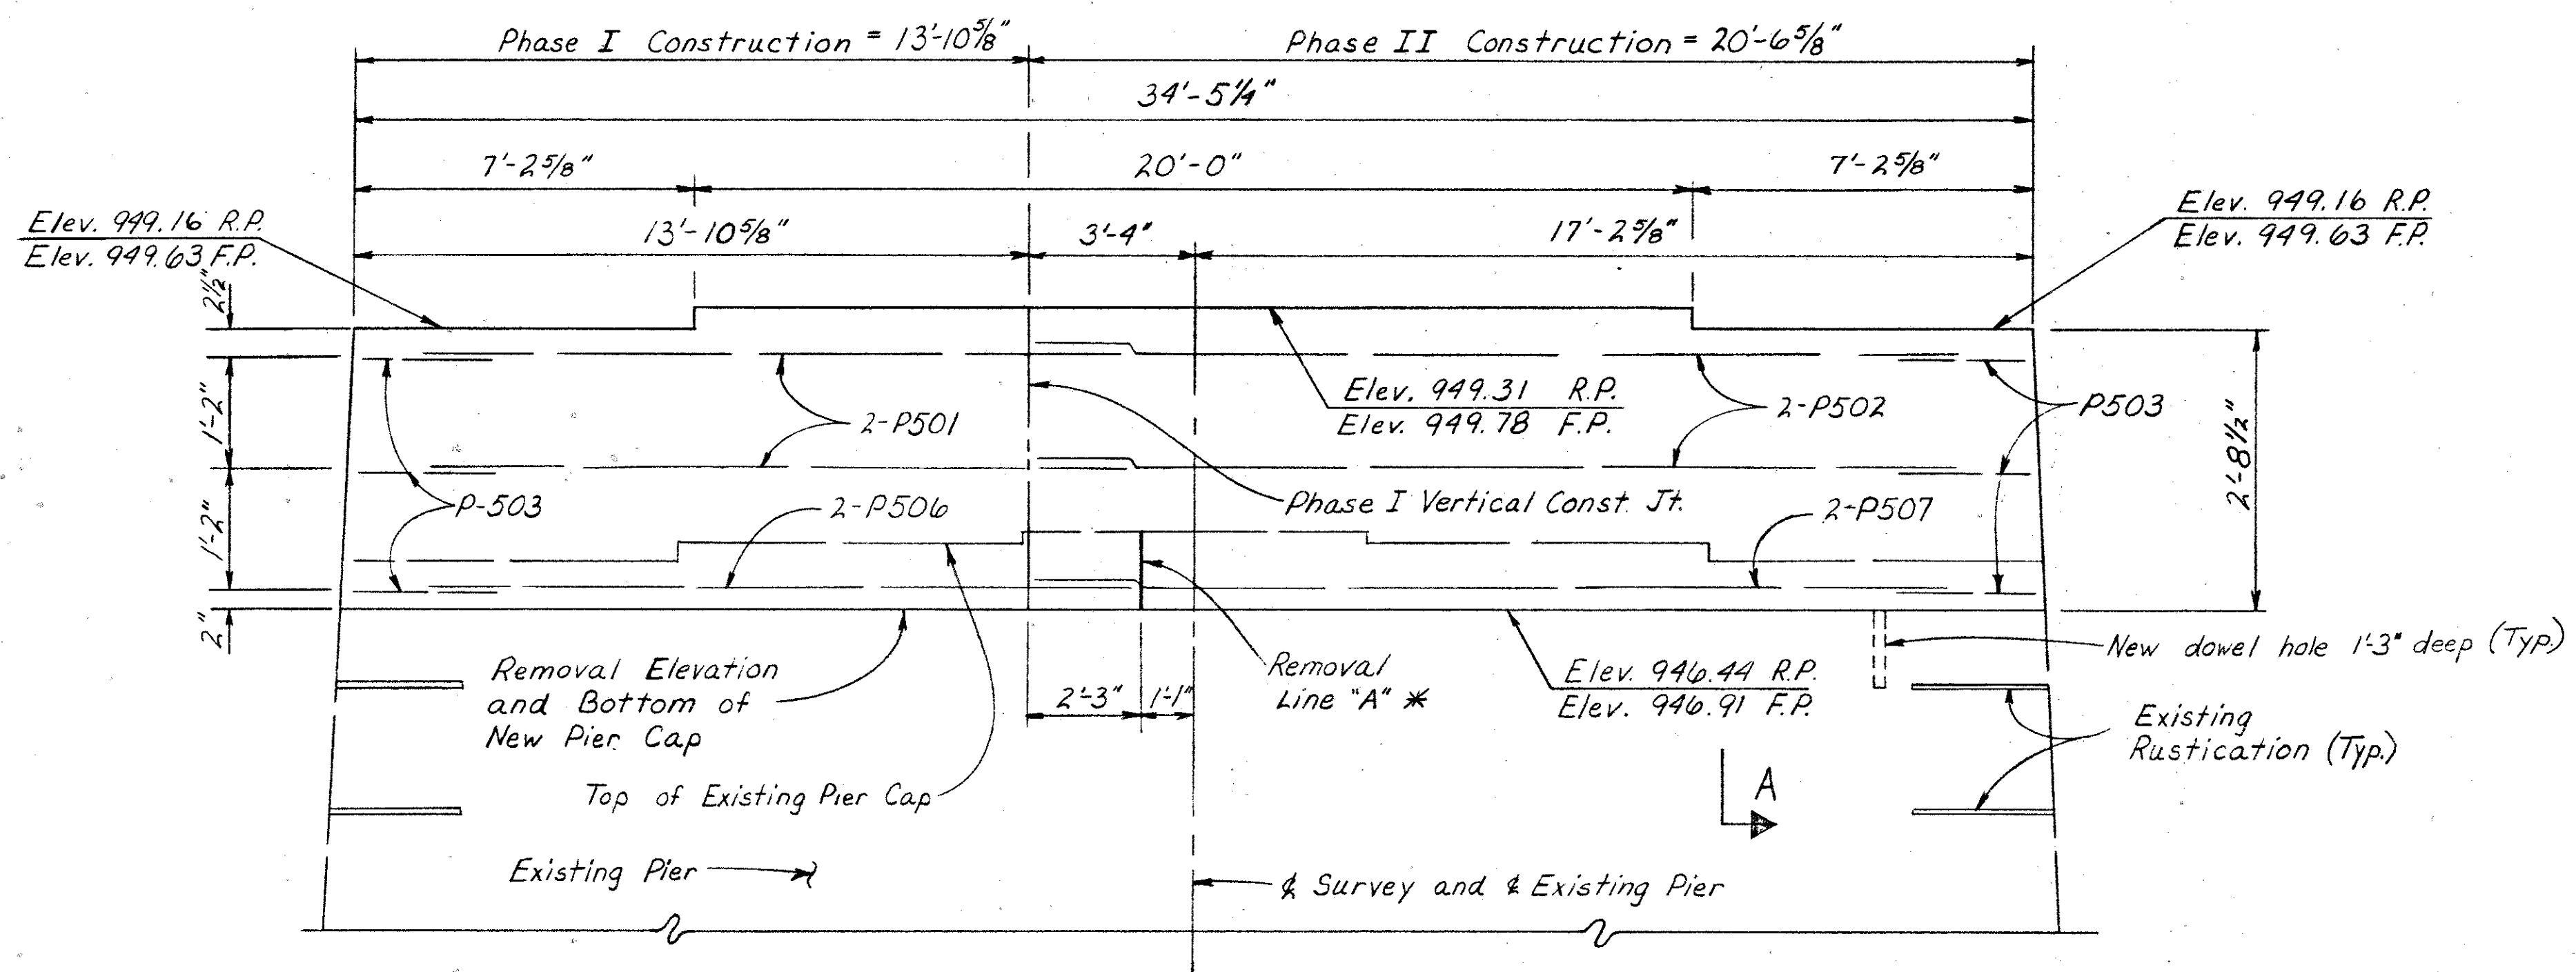 Phase I Construction = 13'-10 5/8"
Phase II Construction = 20'-6 5/8"
34'-5 1/4"
7'-2 5/8"
20'-0"
7'-2 5/8"
Elev. 949.16 R.P.
Elev. 949.63 F.P.
13'-10 5/8"
3'-4"
17'-2 5/8"
Elev. 949.16 R.P.
Elev. 949.63 F.P.
2 1/2"
1'-2"
1'-2"
2"
2-P501
Elev. 949.31 R.P.
Elev. 949.78 F.P.
2-P502
P503
2'-8 1/2"
P-503
2-P506
Phase I Vertical Const. Jt.
2-P507
Removal Elevation
and Bottom of
New Pier Cap
2'-3"
1'-1"
Removal
Line "A" *
Elev. 946.44 R.P.
Elev. 946.91 F.P.
New dowel hole 1'-3" deep (Typ.)
Existing
Rustication (Typ.)
Top of Existing Pier Cap
A
Existing Pier
℄ Survey and ℄ Existing Pier